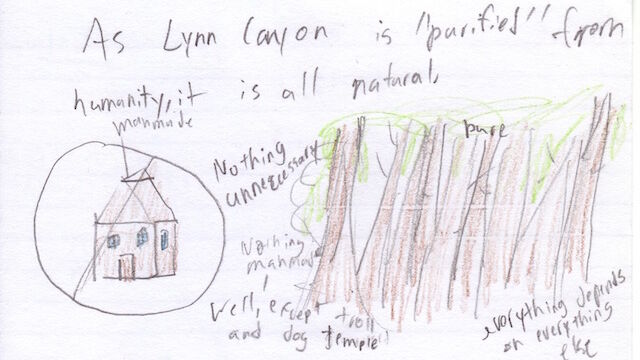 As Lynn Canyon is "purified" from
humanity, it is all natural.
manmade
Nothing
unnecessary
pure
Nothing
manmade
Well, except troll
and dog temple
everything depends
on everything
else